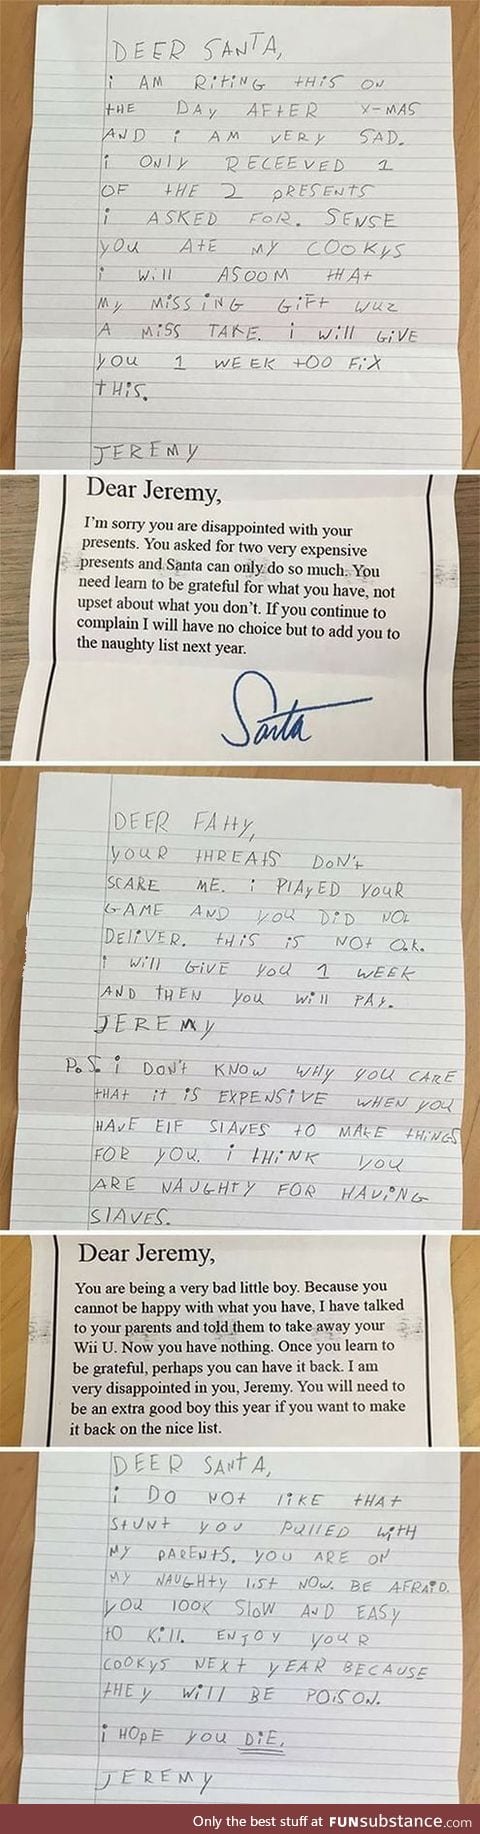 DEER SANTA,
i AM RiTiNG tHiS ON
tHE DAY AFTER X-MAS
AND i AM VERY SAD.
i ONLY RECEEVED 1
OF tHE 2 PRESENTS
i ASKED FOR. SENSE
YOU ATE MY COOKYS
i will ASOOM tHAt
MY MiSSiNG GiFt WUZ
A MiSS TAKE. i will GiVE
YOU 1 WEEK tOO FiX
tHiS.
JEREMY
Dear Jeremy,
I'm sorry you are disappointed with your
presents. You asked for two very expensive
presents and Santa can only do so much. You
need learn to be grateful for what you have, not
upset about what you don't. If you continue to
complain I will have no choice but to add you to
the naughty list next year.
Santa
DEER FAttY,
YOUR tHREAtS DON't
SCARE ME. i PlAYED YOUR
GAME AND YOU DiD NOt
DELiVER. tHiS iS NOt O.K.
i Will GiVE YOU 1 WEEK
AND tHEN YOU Will PAY.
JEREMY
P.S. i DON't KNOW WHY YOU CARE
tHAt it iS EXPENSiVE WHEN YOU
HAVE ElF SlAVES tO MAKE tHiNGS
FOR YOU. i tHiNK YOU
ARE NAUGHtY FOR HAViNG
SlAVES.
Dear Jeremy,
You are being a very bad little boy. Because you
cannot be happy with what you have, I have talked
to your parents and told them to take away your
Wii U. Now you have nothing. Once you learn to
be grateful, perhaps you can have it back. I am
very disappointed in you, Jeremy. You will need to
be an extra good boy this year if you want to make
it back on the nice list.
DEER SANtA,
i DO NOt liKE tHAt
StUNt YOU PUllED witH
MY PARENtS. YOU ARE ON
MY NAUGHtY liSt NOW. BE AFRAiD.
YOU lOOK SlOW AND EASY
tO Kill. ENJOY YOUR
COOKYS NEXt YEAR BECAUSE
tHEY Will BE POiSON.
i HOPE YOU DiE.
JEREMY
Only the best stuff at FUNsubstance.com